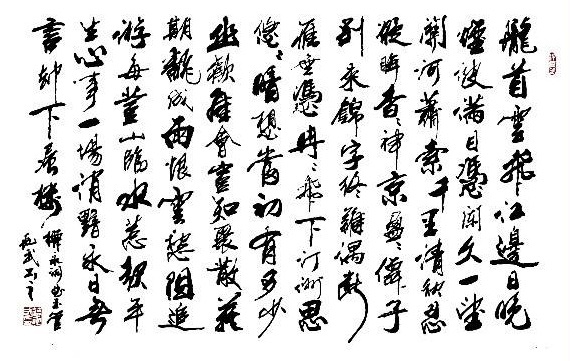 隴首雲飛江邊日晚
煙波滿目憑闌久一望
關河蕭索千里清秋忍
凝眸杳々神京盈々僊子
別來錦字終難偶斷
雁無憑冉々飛下汀洲思
悠々暗想當初有多少
幽歡佳會豈知聚散難
期飜成雨恨雲愁阻追
游每登山臨水惹起平
生心事一場消黯永日無
言却下層樓 柳永詞曲玉管
書之